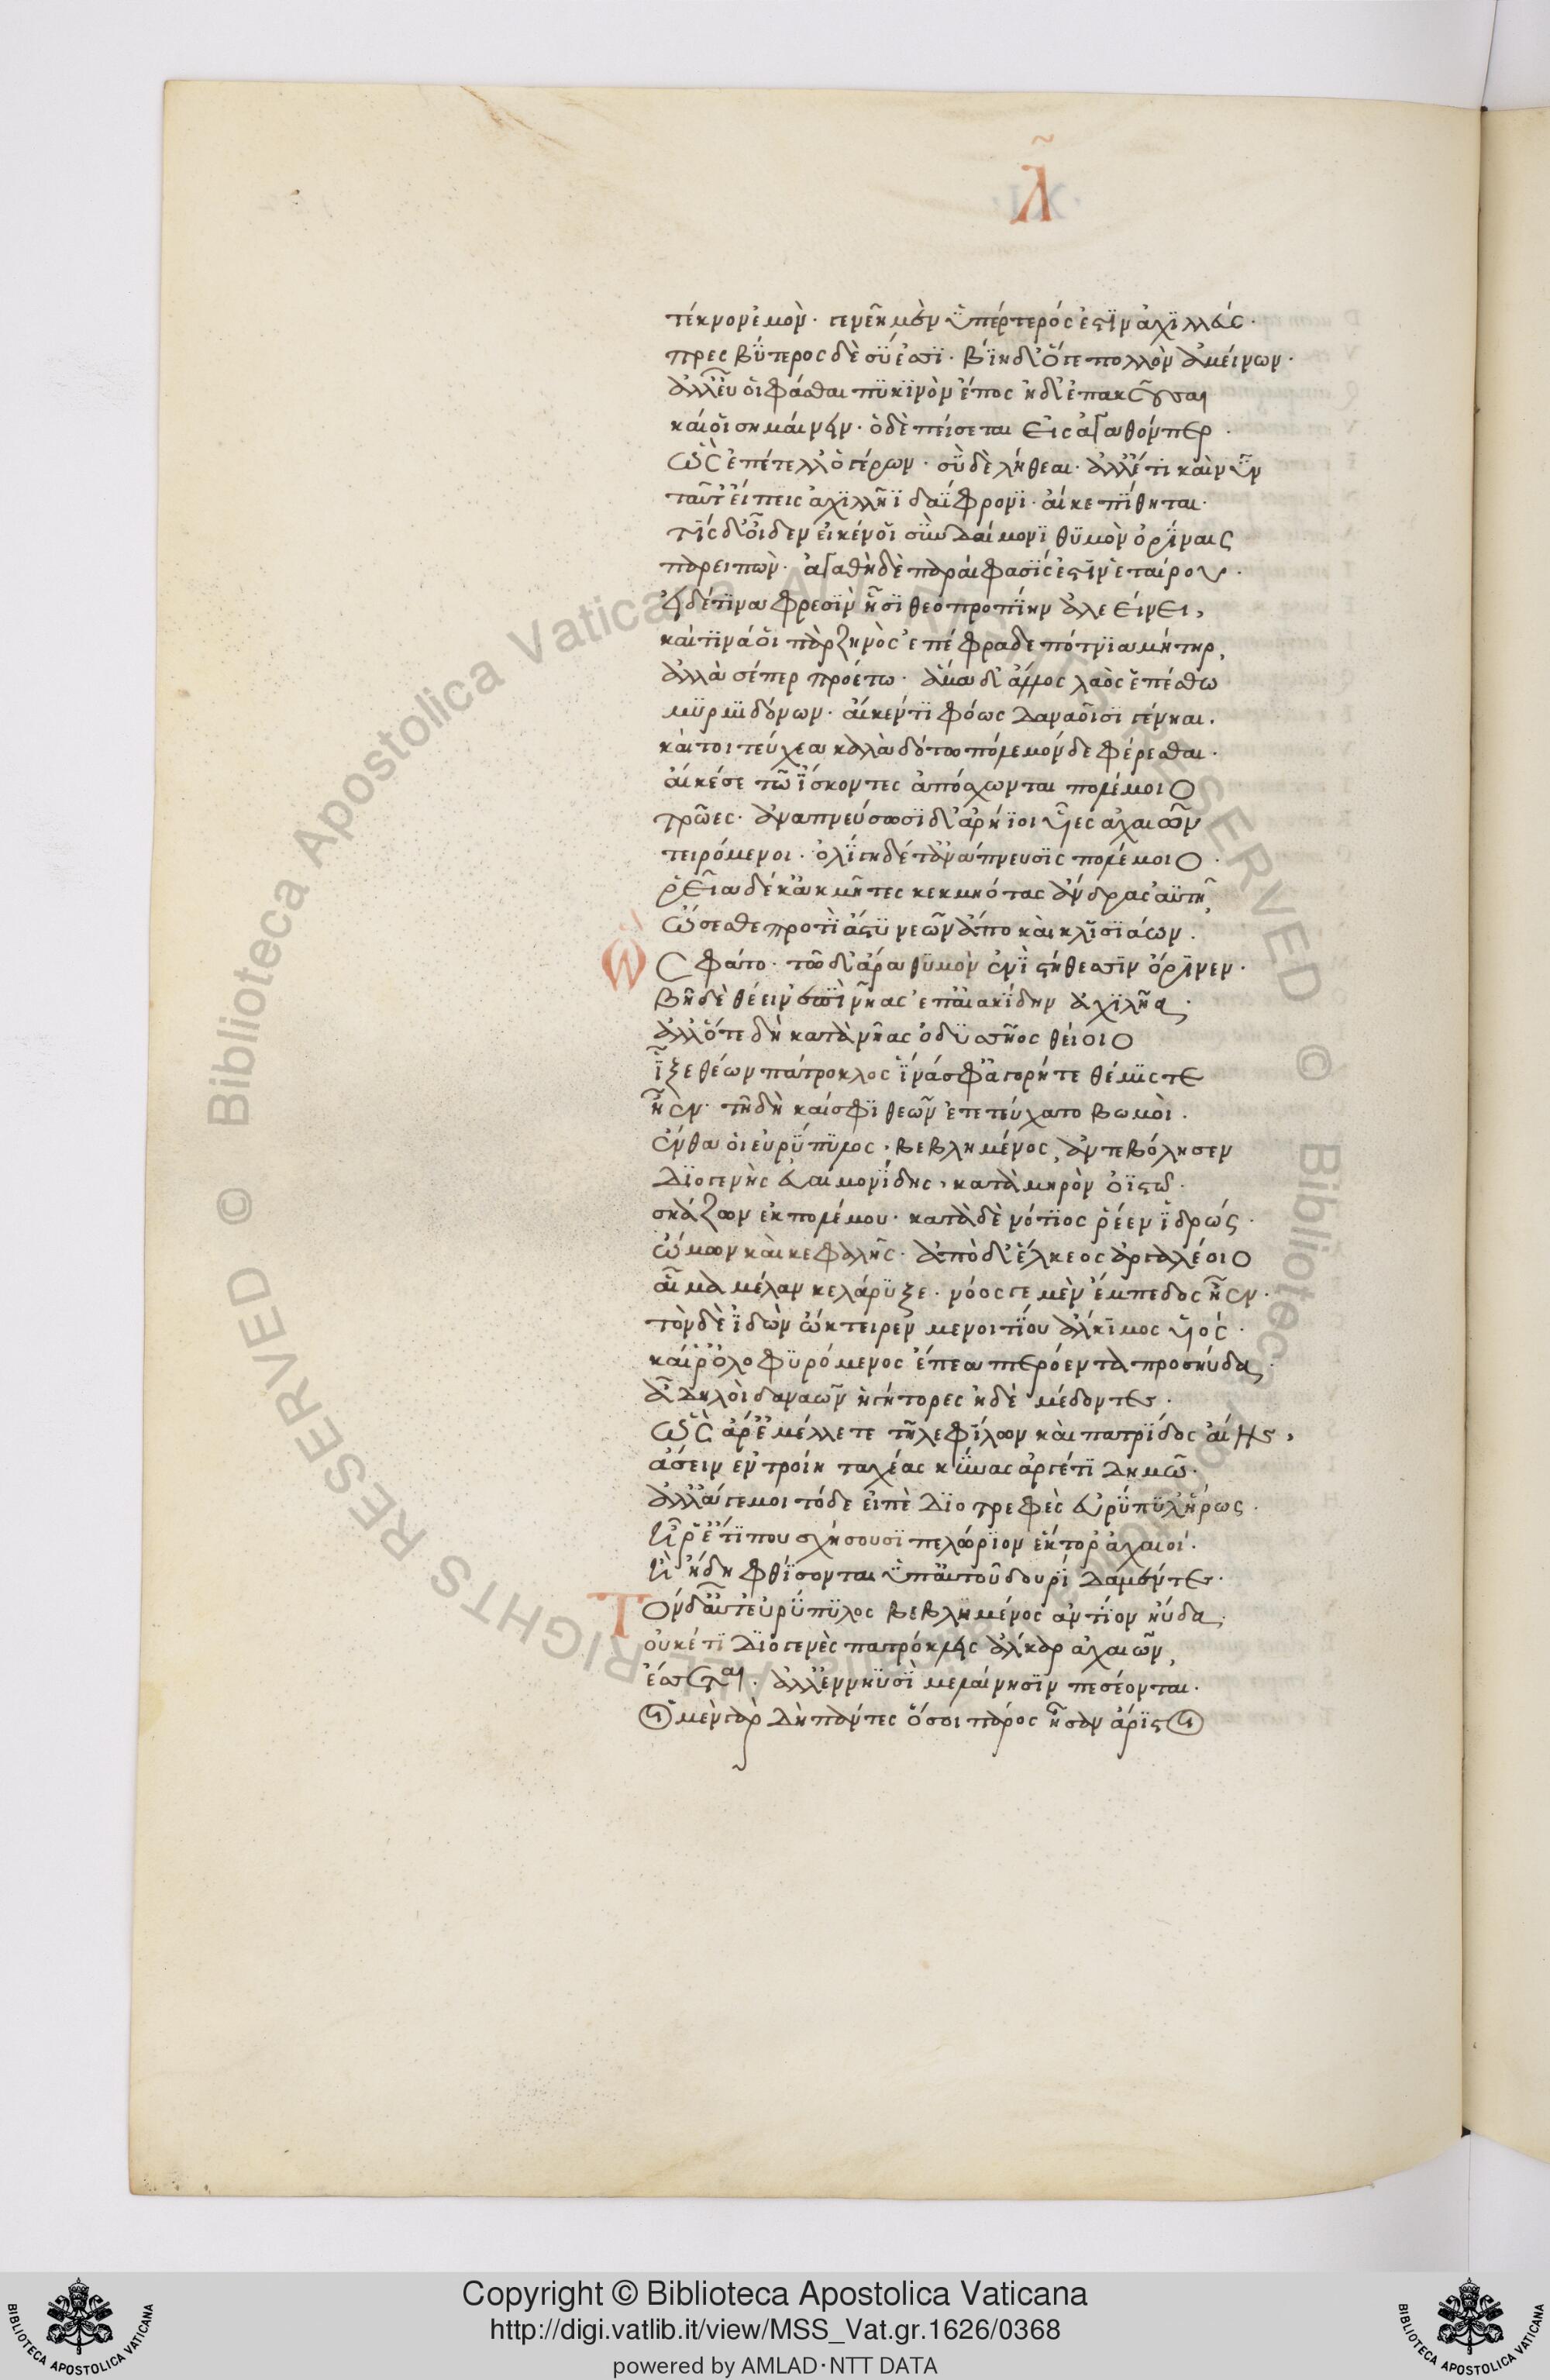 λ̃
τέκνον ἐμὸν· γενεῆ μὲν ὑπέρτερός ἐστὶν ἀχιλλεύς·
πρεσβύτερος δὲ σύ ἐσσι· βίη δ' ὅτε πολλὸν ἀμείνων·
ἀλλ' εὖ οἱ φάσθαι πυκινὸν ἔπος ἠδ' ἐπακοῦσαι
καί οἱ σημαίνειν· ὁ δὲ πείσεται εἰς ἀγαθόν περ·
ὣς ἐπέτελλ' ὁ γέρων· σὺ δὲ λήθεαι· ἀλλ' ἔτι καὶ νῦν
ταῦτ' εἴπεις ἀχιλλῆι δαΐφρονι· αἴ κε πίθηται·
τίς δ' οἶδεν εἰ κέν οἱ σὺν δαίμονι θυμὸν ὀρίναις
παρειπὼν· ἀγαθὴ δὲ παραίφασίς ἐστιν ἑταίρου·
εἰ δέ τινα φρεσὶν ᾗσι θεοπροπίην ἀλεείνει,
καί τινά οἱ πὰρ ζηνὸς ἐπέφραδε πότνια μήτηρ,
ἀλλὰ σέ περ προέτω· ἅμα δ' ἄλλος λαὸς ἑπέσθω
μυρμιδόνων· αἴ κέν τι φόως δαναοῖσι γένηαι·
καί τοι τεύχεα καλὰ δότω πόλεμόνδε φέρεσθαι·
αἴ κέ σε τῶ ἴσκοντες ἀπόσχωνται πολέμοιο
τρῶες· ἀναπνεύσωσι δ' ἀρήϊοι υἷες ἀχαιῶν
τειρόμενοι· ὀλίγη δέ τ' ἀνάπνευσις πολέμοιο·
ῥεῖα δέ κ' ἀκμῆτες κεκμηότας ἄνδρας ἀϋτῆ,
ὤσεσθε προτὶ ἄστυ νεῶν ἄπο καὶ κλισιάων·
ὣς φάτο· τῶ δ' ἄρα θυμὸν ἐνὶ στήθεσσιν ὄρινεν·
βῆ δὲ θέειν ἐπὶ νῆας ἐπ' αἰακίδην ἀχιλῆα·
ἀλλ' ὅτε δὴ κατὰ νῆας ὀδυσσῆος θείοιο
ἷξε θέων πάτροκλος ἵνά σφ' ἀγορή τε θέμις τε
ἤην· τῆ δὴ καί σφι θεῶν ἐπετεύχατο βωμοὶ·
ἔνθα οἱ εὐρύπυλος, βεβλημένος, ἀντεβόλησεν
διογενὴς εὐαιμονίδης, κατὰ μηρὸν ὀϊστῶ·
σκάζων ἐκ πολέμου· κατὰ δὲ νότιος ῥέεν ἱδρώς·
ὤμων καὶ κεφαλῆς· ἀπὸ δ' ἕλκεος ἀργαλέοιο
αἷμα μέλαν κελάρυξε· νόος γε μὲν ἔμπεδος ἦεν·
τὸν δὲ ἰδὼν ὤκτειρεν μενοιτίου ἄλκιμος υἱός·
καί ῥ' ὀλοφυρόμενος ἔπεα πτερόεντα προσηύδα·
ἆ δηλοὶ δαναῶν ἡγήτορες ἠδὲ μέδοντες·
ὣς ἄρ' ἐμέλλετε τῆλε φίλων καὶ πατρίδος αἴης,
ἄσειν ἐν τροίη ταχέας κύνας ἀργέτι δημῶ·
ἀλλ' ἄγε μοι τόδε εἰπὲ διοτρεφὲς εὐρύπυλ' ἥρως·
ἤ ῥ' ἔτι που σχήσουσι πελώριον ἕκτορ' ἀχαιοί·
ἦ ἤδη φθίσονται ὑπ' αὐτοῦ δουρὶ δαμέντες·
Τὸν δ' αὖτ' εὐρύπυλος βεβλημένος ἀντίον ηὔδα·
οὐκέτι διογενὲς πατρόκλεις ἄλκαρ ἀχαιῶν,
ἔσσεται· ἀλλ' ἐν νηυσὶ μελαίνησιν πεσέονται·
οἱ μὲν γὰρ δὴ πάντες ὅσοι πάρος ἦσαν ἄριστοι
Copyright © Biblioteca Apostolica Vaticana
http://digi.vatlib.it/view/MSS_Vat.gr.1626/0368
powered by AMLAD·NTT DATA
BIBLIOTECA APOSTOLICA VATICANA
BIBLIOTECA APOSTOLICA VATICANA
© Biblioteca Apostolica Vaticana ALL RIGHTS RESERVED © Biblioteca Apostolica Vaticana ALL RIGHTS RESERVED